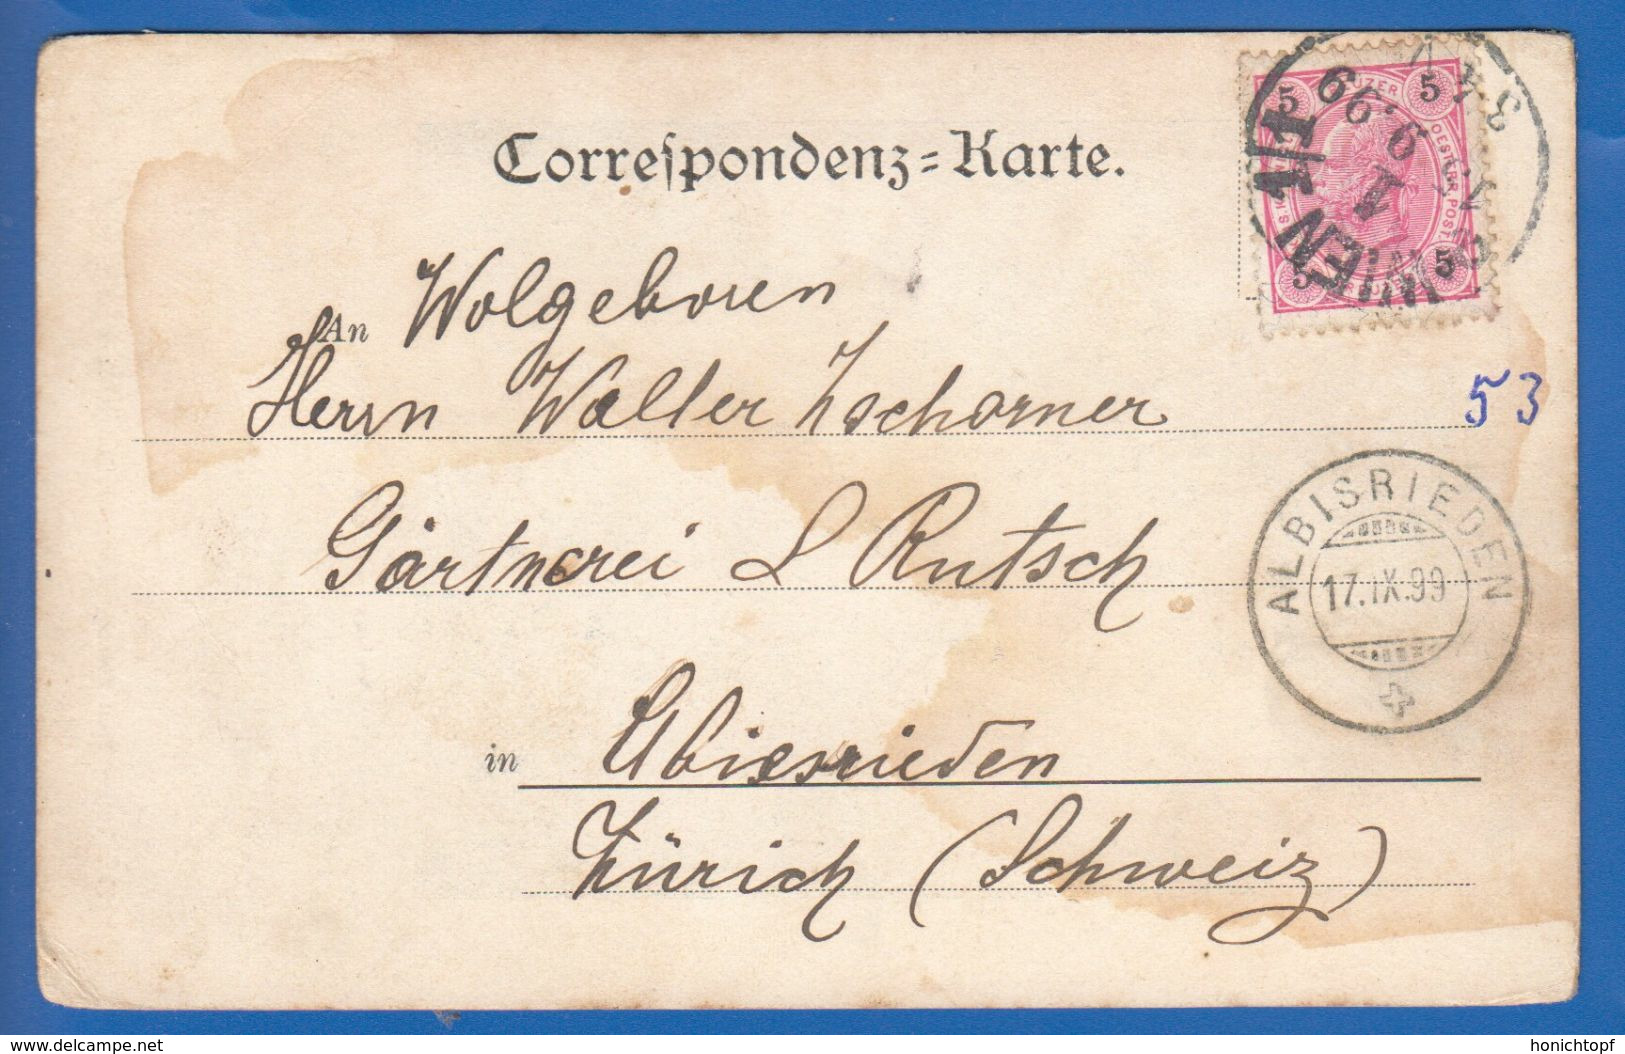 Correspondenz-Karte.
An Wolgeboren
Herrn Walter Zschorner
Gärtnerei L Rutsch
in Abiesrieden
Zürich (Schweiz)
53
5 5 5 5
OESTERR. POST.
WIEN 1/1
9. 99
ALBISRIEDEN
17.IX.99
www.delcampe.net
honichtopf